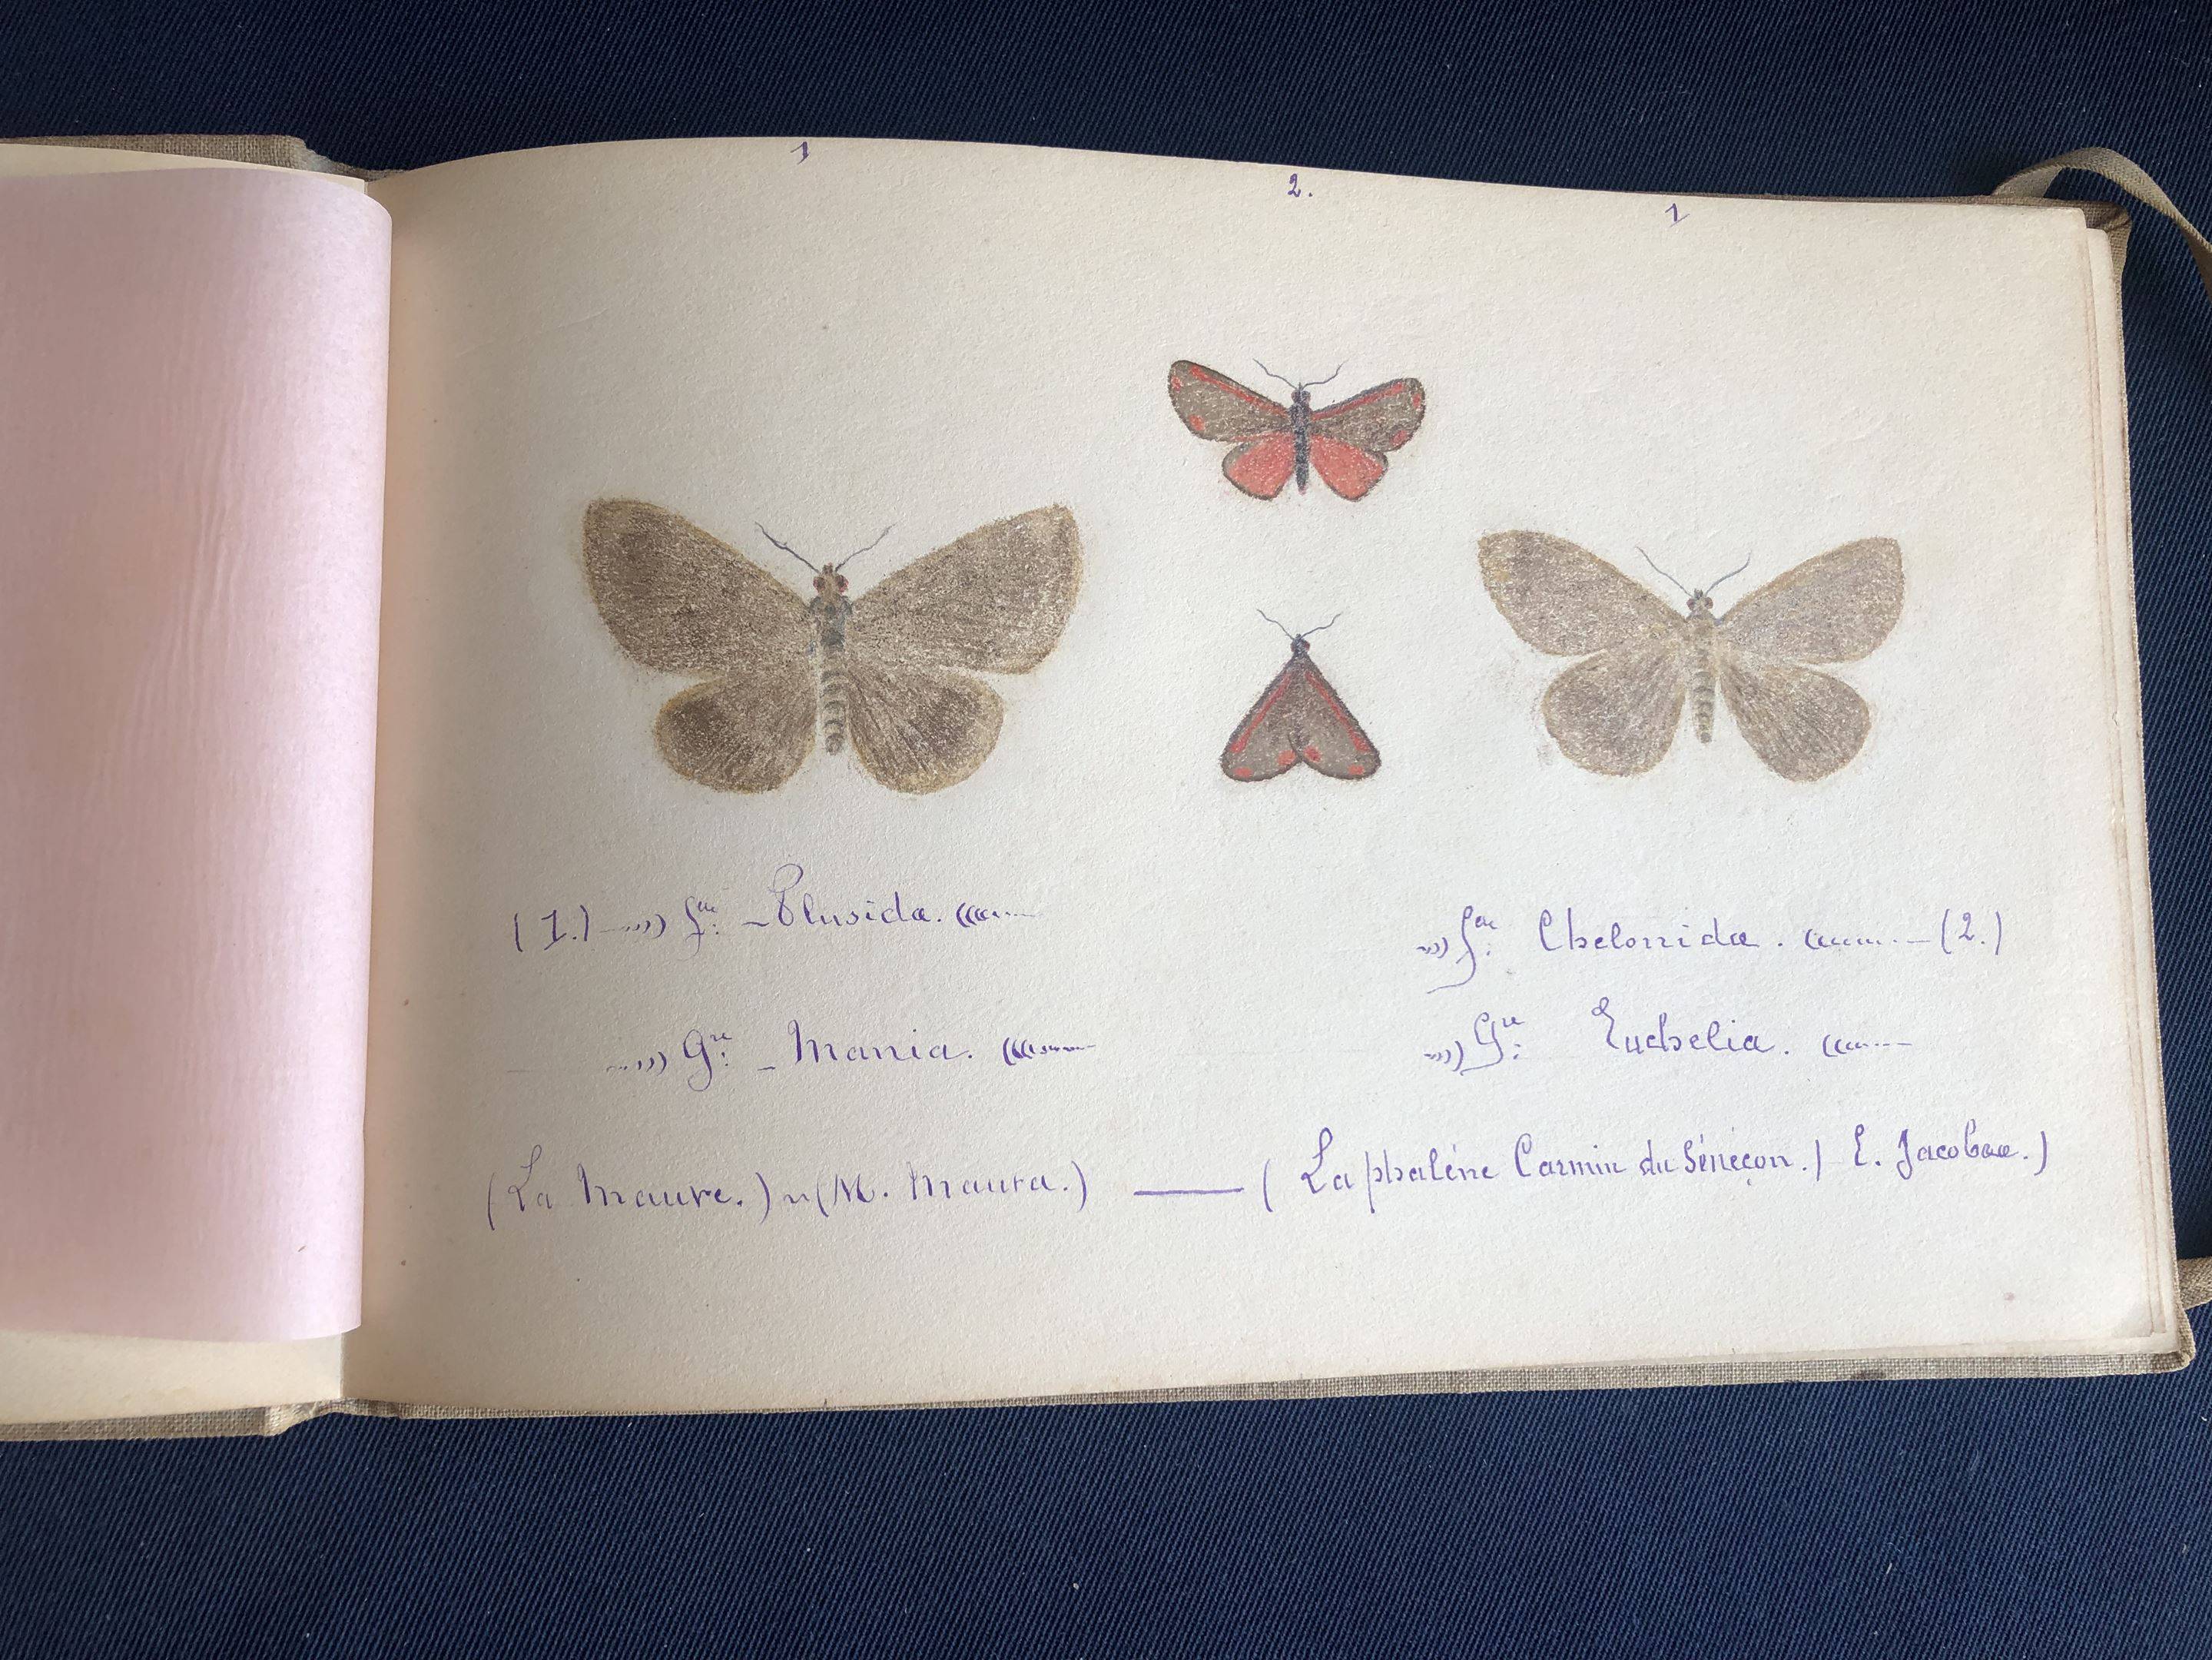 1 2. 1
(1.) fˡˡᵉ: Plusidæ. fˡˡᵉ: Chelonidæ. (2.)
Gʳᵉ: Mania. Gʳᵉ: Euchelia.
(La Maure.) (M. Maura.) — (La phalène Carmin du Séneçon.) E. Jacobææ.)